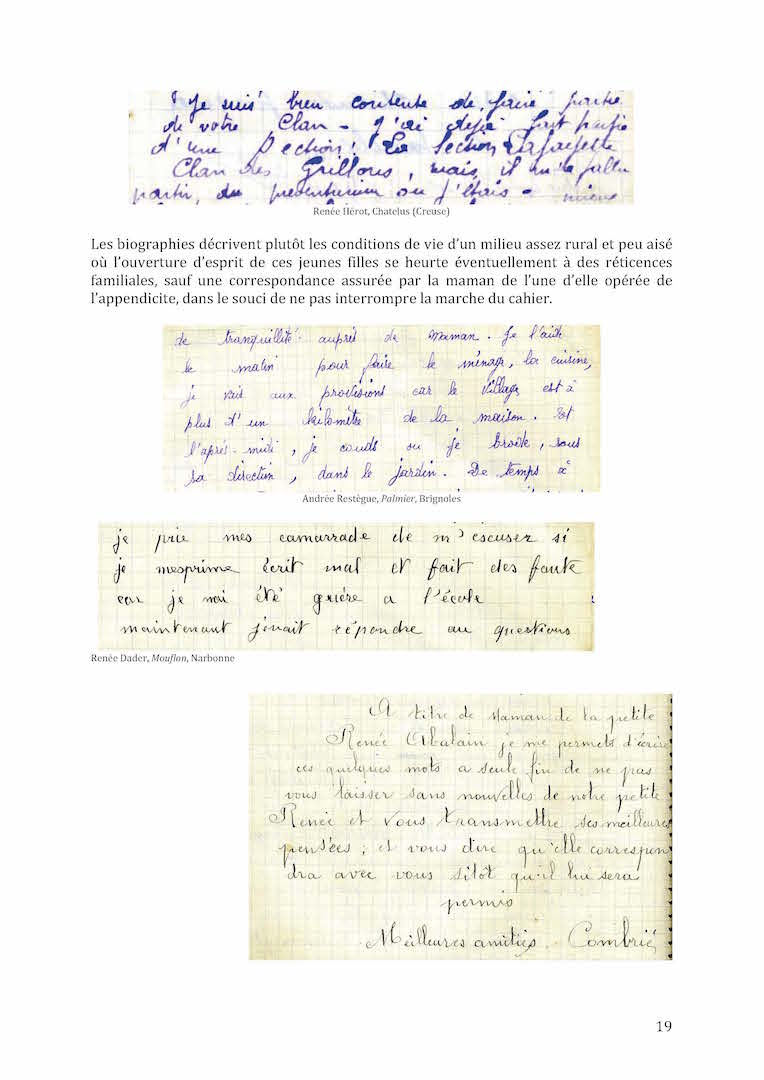 Je suis bien contente de faire partie
de votre Clan - J'ai déjà fait partie
d'une Section : La Section Lafayette
Clan des Grillons, mais il m'a fallu
partir, du preventorium ou j'étais - mieux
Renée Hérot, Chatelus (Creuse)
Les biographies décrivent plutôt les conditions de vie d'un milieu assez rural et peu aisé
où l'ouverture d'esprit de ces jeunes filles se heurte éventuellement à des réticences
familiales, sauf une correspondance assurée par la maman de l'une d'elle opérée de
l'appendicite, dans le souci de ne pas interrompre la marche du cahier.
de tranquillité auprès de maman. Je l'aide
le matin pour faire le ménage, la cuisine,
je vais aux provisions car le village est à
plus d'un kilomètre de la maison. Et
l'après-midi, je couds ou je brode, sous
sa direction, dans le jardin. De temps à
Andrée Restègue, Palmier, Brignoles
je prie mes camarrade de m'escusez si
je mesprime écrit mal et fait des faute
car je nai été guière a l'école
maintenant jenait répondre au questions
Renée Dader, Mouflon, Narbonne
A titre de Maman de la petite
Renée Abalain je me permets d'écrire
ces quelques mots a seule fin de ne pas
vous laisser sans nouvelles de notre petite
Renée et vous transmettre ses meilleures
pensées ; et vous dire qu'elle correspon
dra avec vous sitôt qu'il lui sera
permis
Meilleures amitiés. Combrié
19